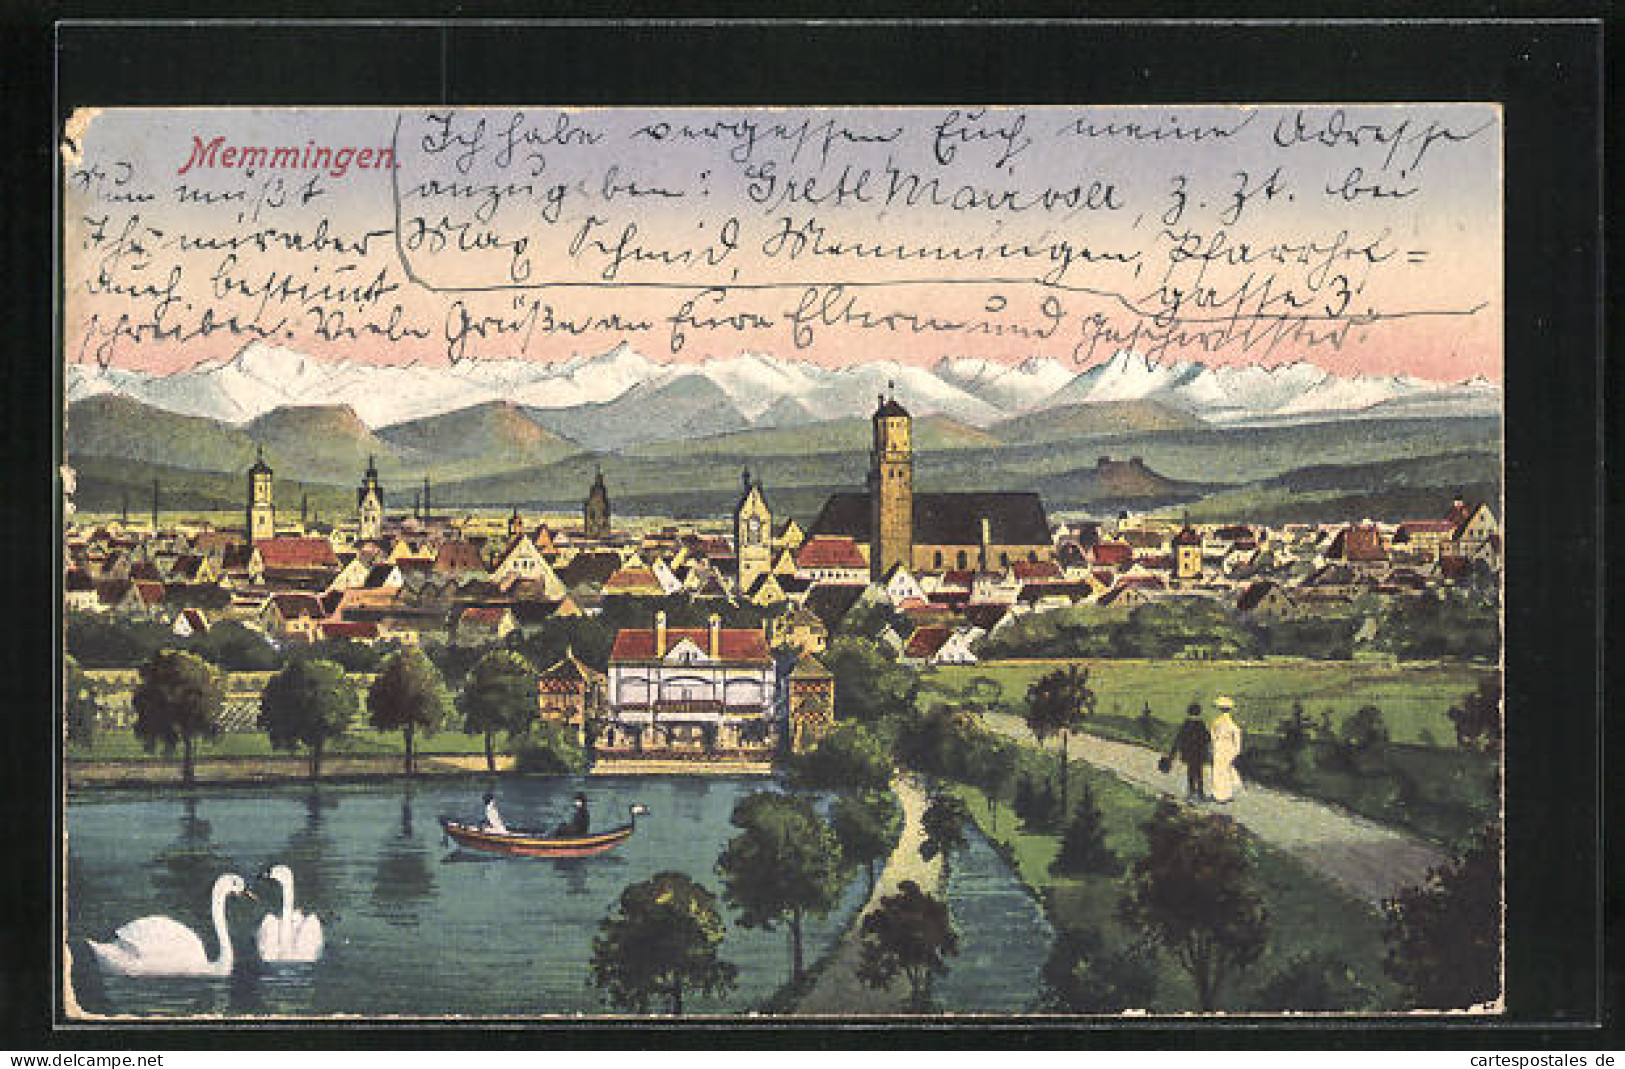 Memmingen.
Ich habe vergessen Euch meine Adresse
anzugeben: Gretl z. Zt. bei
Max Schmid, Memmingen, Pfarrhof=
gasse 3.
Nun müßt
Ihr mir aber
auch bestimmt
schreiben. Viele Grüße an Eure Eltern und Geschwister.
cartespostales de